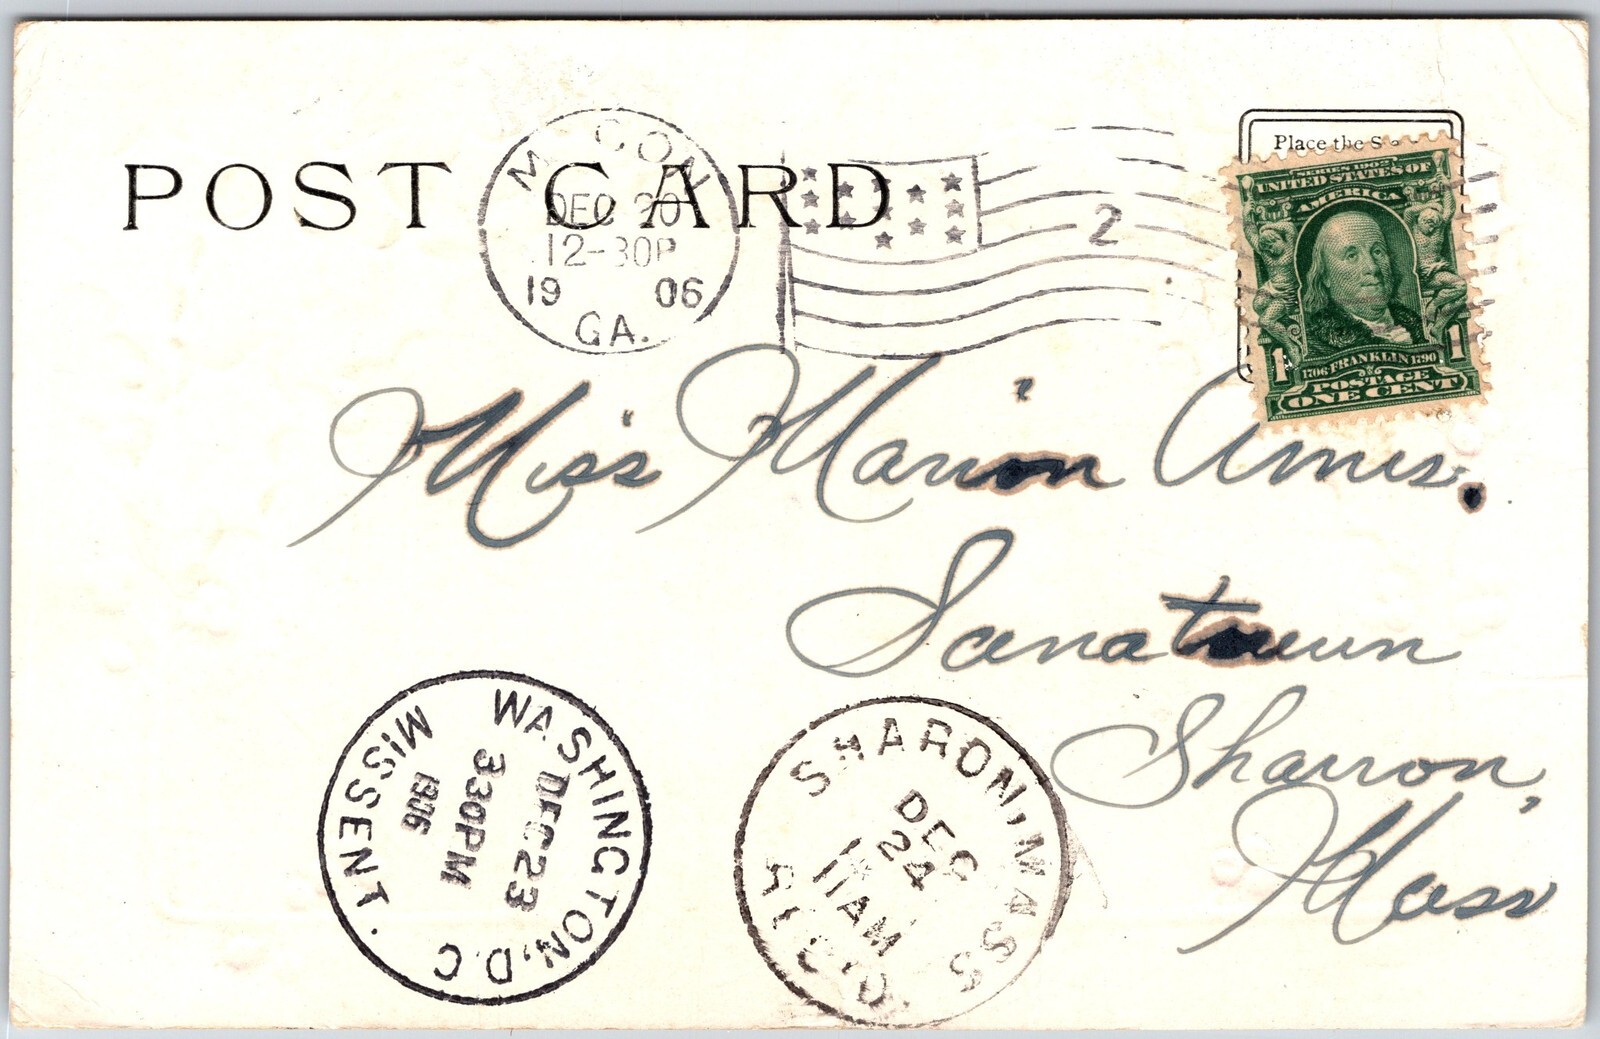 POST CARD
MACON
DEC 20
12-30P
1906
GA.
2
Place the S
SERIES 1902
UNITED STATES OF
AMERICA
1 1706 FRANKLIN 1790 1
POSTAGE
ONE CENT
Miss Marion Ames.
Sanatarium
Sharron,
Mass
WASHINGTON, D.C.
DEC 23
330PM
1906
MISSENT.
SHARON, MASS
DEC
24
11AM
REC'D.